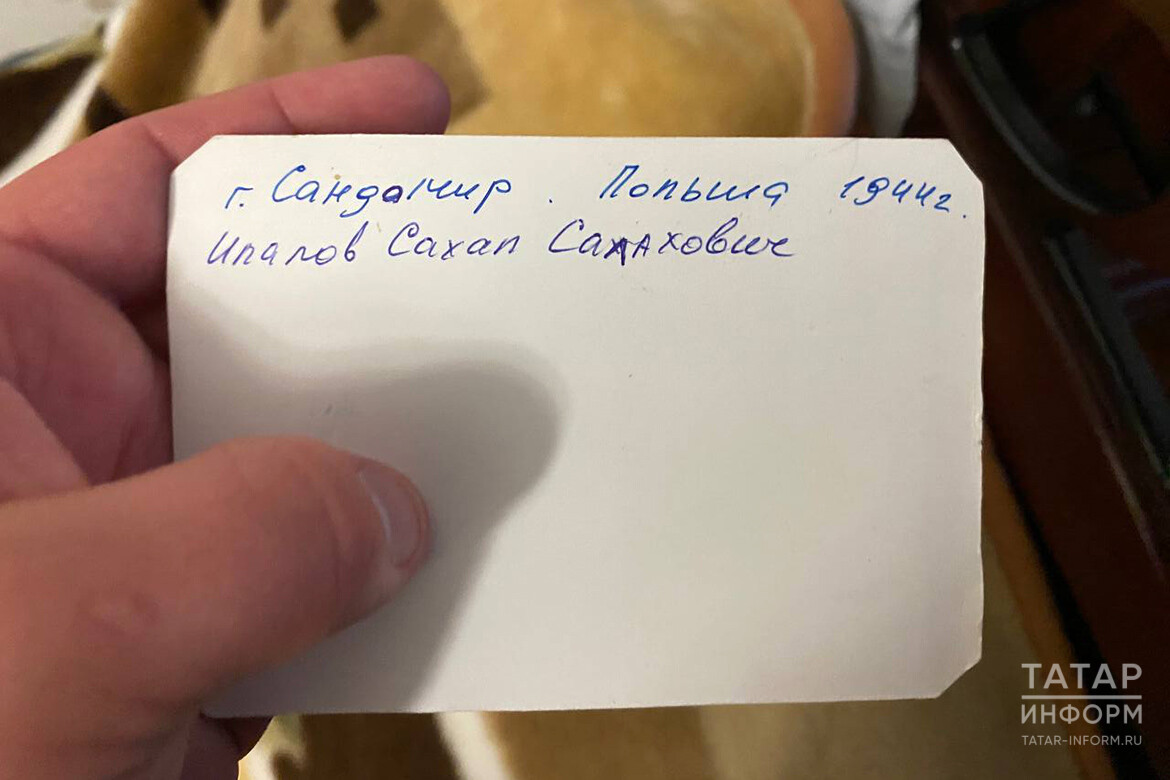 г. Сандомир. Польша 1944г.
Ипалов Сахап Сахахович
ТАТАР
ИНФОРМ
TATAR-INFORM.RU